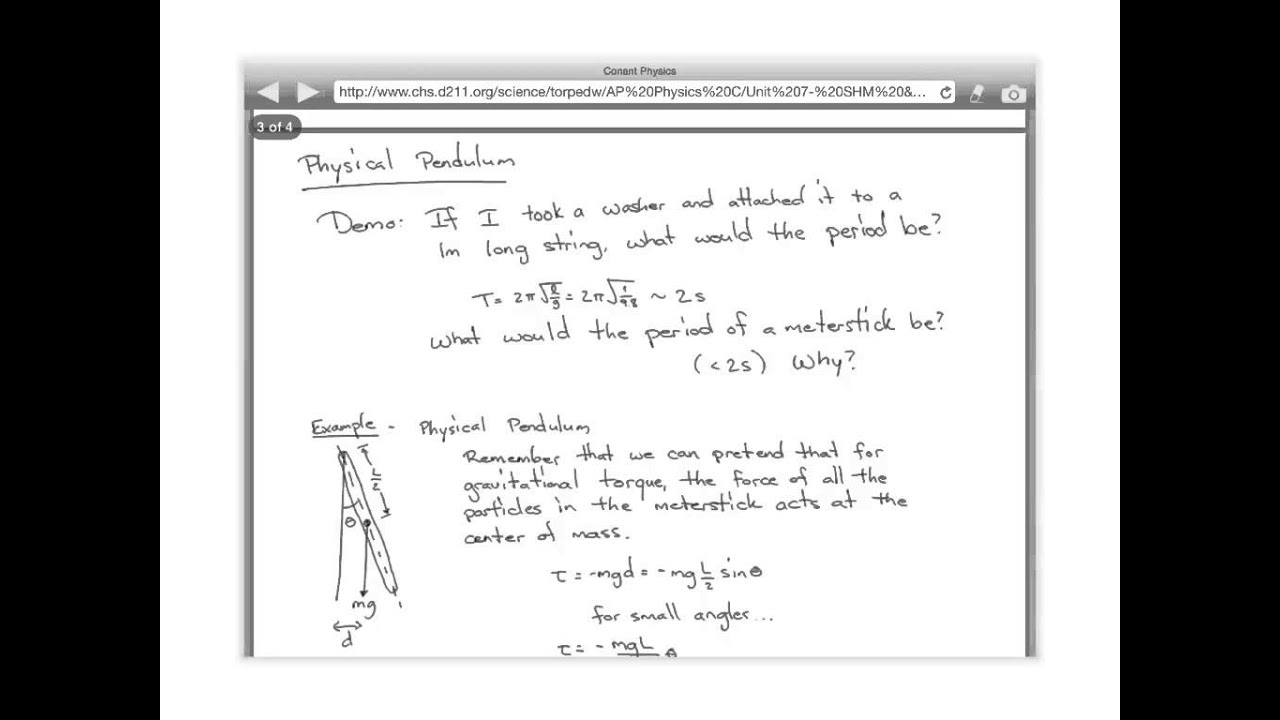 Conant Physics
http://www.chs.d211.org/science/torpedw/AP%20Physics%20C/Unit%207-%20SHM%20&...
3 of 4
Physical Pendulum
Demo: If I took a washer and attached it to a
1m long string, what would the period be?
T= 2π√(l/g) = 2π√(1/9.8) ~ 2s
What would the period of a meterstick be?
(<2s) Why?
Example - Physical Pendulum
Remember that we can pretend that for
gravitational torque, the force of all the
particles in the meterstick acts at the
center of mass.
L/2
θ
mg
d
τ = -mgd = -mg L/2 sinθ
for small angles...
τ = - mgL θ